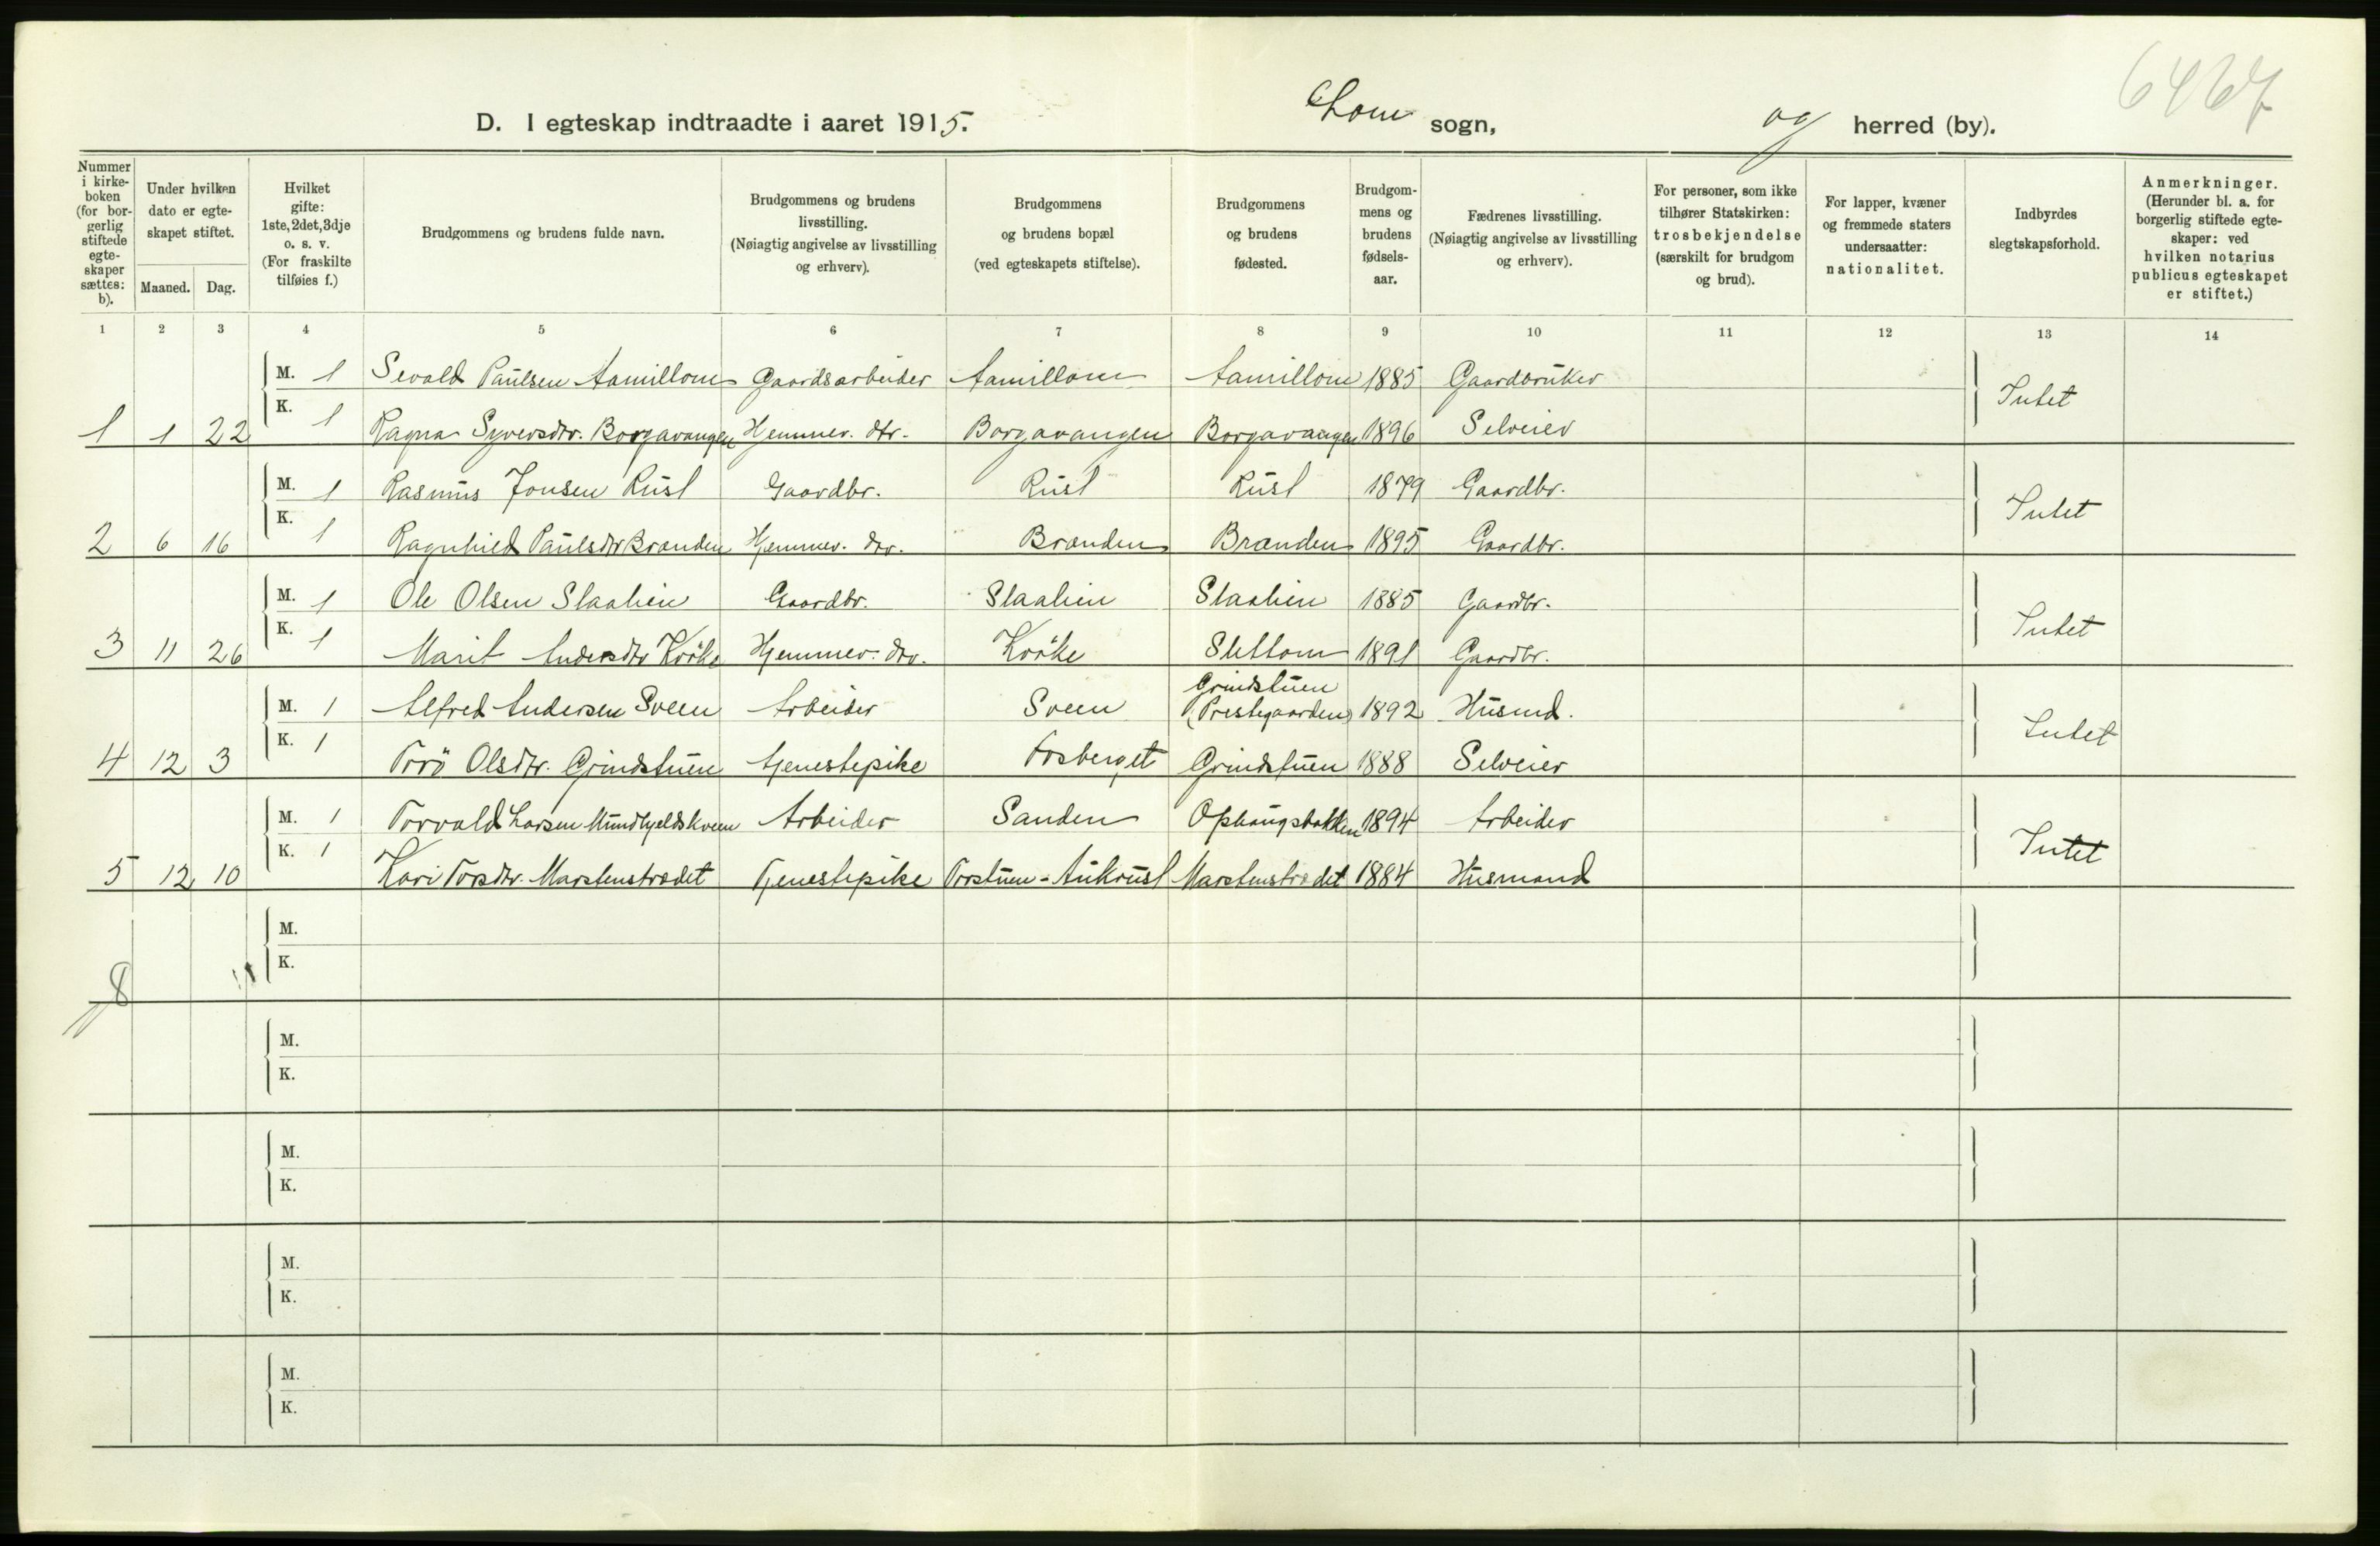 6467
D. I egteskap indtraadte i aaret 1915. Lom sogn, og herred (by).
Nummer i kirke-boken (for bor-gerlig stiftede egte-skaper sættes: b).
Under hvilken dato er egte-skapet stiftet.
Maaned. Dag.
Hvilket gifte: 1ste, 2det, 3dje o. s. v. (For fraskilte tilføies f.)
Brudgommens og brudens fulde navn.
Brudgommens og brudens livsstilling. (Nøiagtig angivelse av livsstilling og erhverv).
Brudgommens og brudens bopæl (ved egteskapets stiftelse).
Brudgommens og brudens fødested.
Brudgom-mens og brudens fødsels-aar.
Fædrenes livsstilling. (Nøiagtig angivelse av livsstilling og erhverv).
For personer, som ikke tilhører Statskirken: trosbekjendelse (særskilt for brudgom og brud).
For lapper, kvæner og fremmede staters undersaatter: nationalitet.
Indbyrdes slegtskapsforhold.
Anmerkninger. (Herunder bl. a. for borgerlig stiftede egte-skaper: ved hvilken notarius publicus egteskapet er stiftet.)
1 2 3 4 5 6 7 8 9 10 11 12 13 14
M. 1 Sevald Paulsen Aamillom Gaardsarbeider Aamillom Aamillom 1885 Gaardbruker
Intet
1 1 22 K. 1 Ragna Syversdtr. Borgavangen Hjemmev. dtr. Borgavangen Borgavangen 1896 Selveier
M. 1 Rasmus Jonsen Rust Gaardbr. Rust Rust 1879 Gaardbr.
Intet
2 6 16 K. 1 Ragnhild Paulsdtr Branden Hjemmev. dtr. Branden Branden 1895 Gaardbr.
M. 1 Ole Olsen Slaalien Gaardbr. Slaalien Slaalien 1885 Gaardbr.
Intet
3 11 26 K. 1 Marit Andersdtr Kröke Hjemmev. dtr. Kröke Slettom 1891 Gaardbr.
M. 1 Alfred Andersen Sveen Arbeider Sveen Grindstuen (Prestegaarden) 1892 Husmd.
Intet
4 12 3 K. 1 Torö Olsdtr. Grindstuen Tjenestepike Fosberget Grindstuen 1888 Selveier
M. 1 Torvald Larsen Mundhjeldskveen Arbeider Sanden Ophaugsbakken 1894 Arbeider
Intet
5 12 10 K. 1 Kari Torsdtr. Marstenstrædet Tjenestepike Trostuen-Aukrust Marstenstrædet 1884 Husmand
M.
8 K.
M.
K.
M.
K.
M.
K.
M.
K.